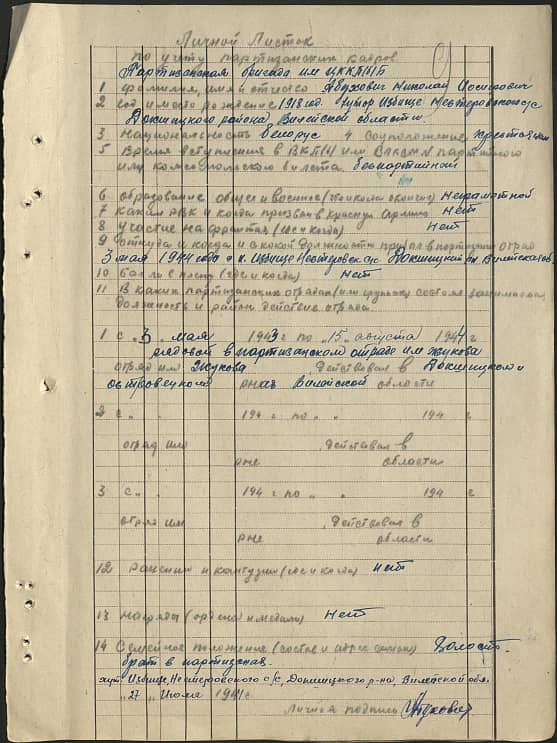 Личной Листок
по учету партизанских кадров
Партизанская бригада им ЦККП(б)Б
1 фамилия, имя и отчество Абухович Николай Иосифович
2 год и место рождение 1918 год. Хутор Избище Нестеровского с/с
Докшицкого района Вилейской области.
3 Национальность белорус 4 Соцположение крестьянин
5 Время вступления в ВКП(б) или ВЛКСМ № партийного
или комсомольского билета беспартейный
6 образование общее и военное (что и когда окончил) неграмотной
7 Каким РВК и когда призван в Красную Армию нет
8 Участие на фронтах (где и когда) нет
9 откуда и когда и в какой должности прибыл в партизан отряд
3 мая 1944 года с х. Избище Нестеровск с/с Докшицкий рн. Вилейской об.
10 был ли в плену (где и когда) нет
11 В каких партизанских отрядах (или группах) состоял занимаемая
должность и район действие отряда
1 с „3 „ мая 1943 г по „15„ августа 1944 г
рядовой в партизанском отряде им Жукова
отряд им Жукова Действовал в Докшицком и
островецком р-нах Вилейской области
2 с „ „ 194 г по „ „ 194 г
отряд им Действовал в
рне области
3 с „ „ 194 г по „ „ 194 г
отряд им Действовал в
рне области
12 Ранения и контузии (где и когда) нет
13 награды (ордена и медали) нет
14 Семейное положение (состав и адрес семьи) Холост.
брат в партизанах.
хут. Избище, Нестеровского с/с, Докшицкого р-на, Вилейской обл.
„27 „ Июля 1944 г.
Личная подпись